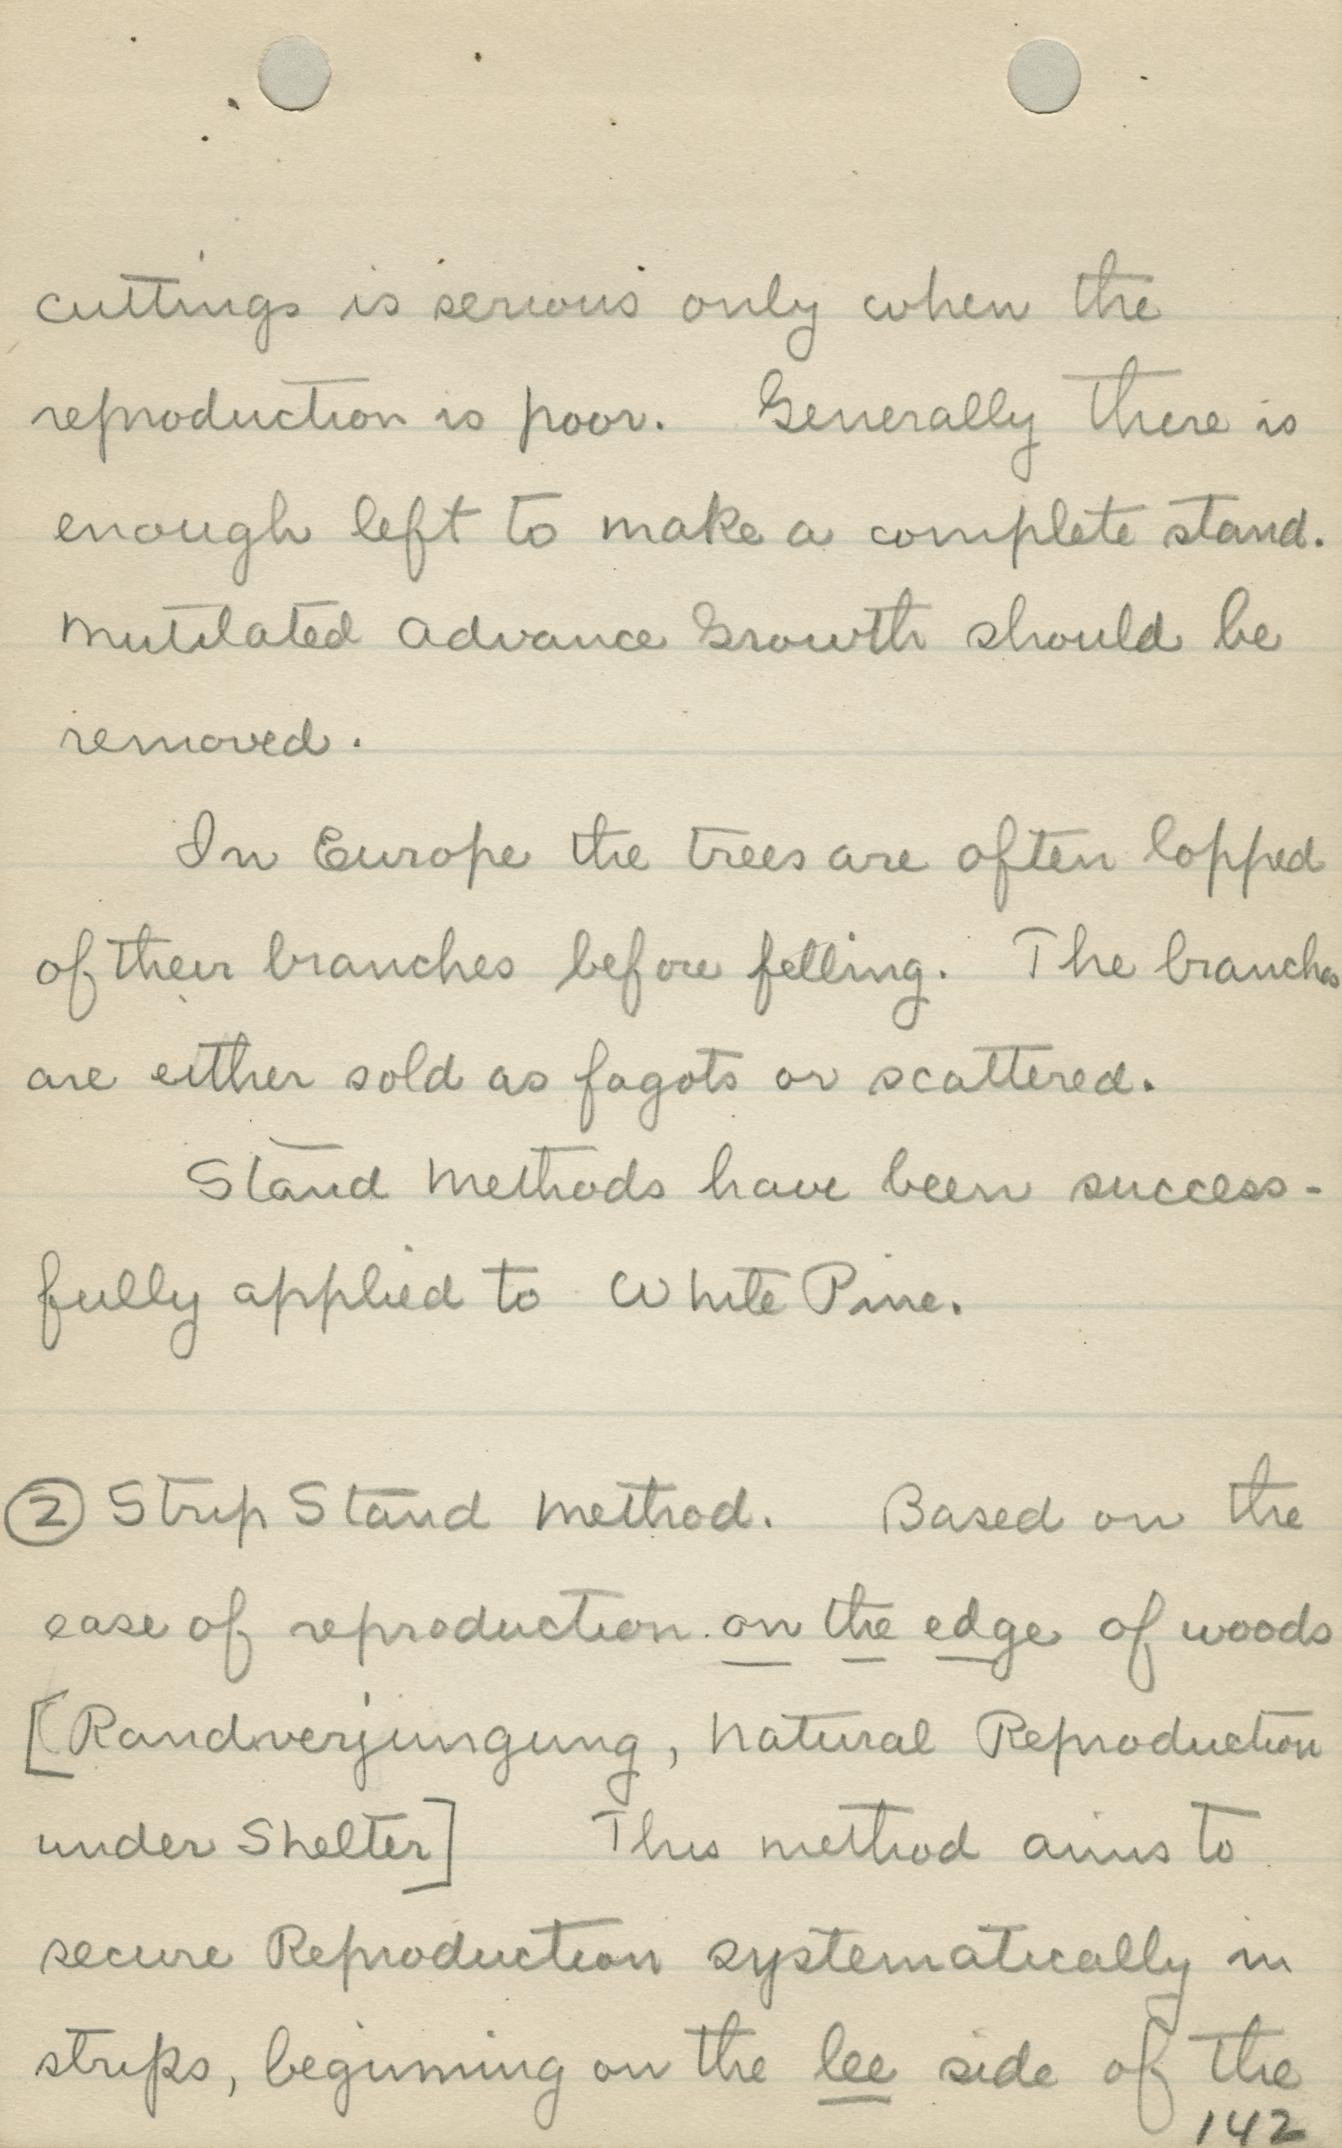 cuttings is serious only when the
reproduction is poor. Generally there is
enough left to make a complete stand.
Mutilated Advance Growth should be
removed.
In Europe the trees are often lopped
of their branches before felling. The branches
are either sold as fagots or scattered.
Stand Methods have been success-
fully applied to White Pine.
② Strip Stand Method. Based on the
ease of reproduction on the edge of woods
[Randverjungung, Natural Reproduction
under Shelter] This method aims to
secure Reproduction systematically in
strips, beginning on the lee side of the
142